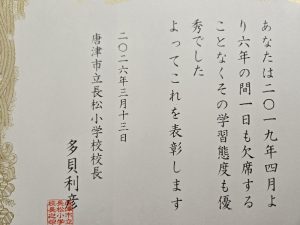 あなたは二〇一九年四月よ
り六年の間一日も欠席する
ことなくその学習態度も優
秀でした
よってこれを表彰します
二〇二六年三月十三日
唐津市立長松小学校校長
多貝利彦